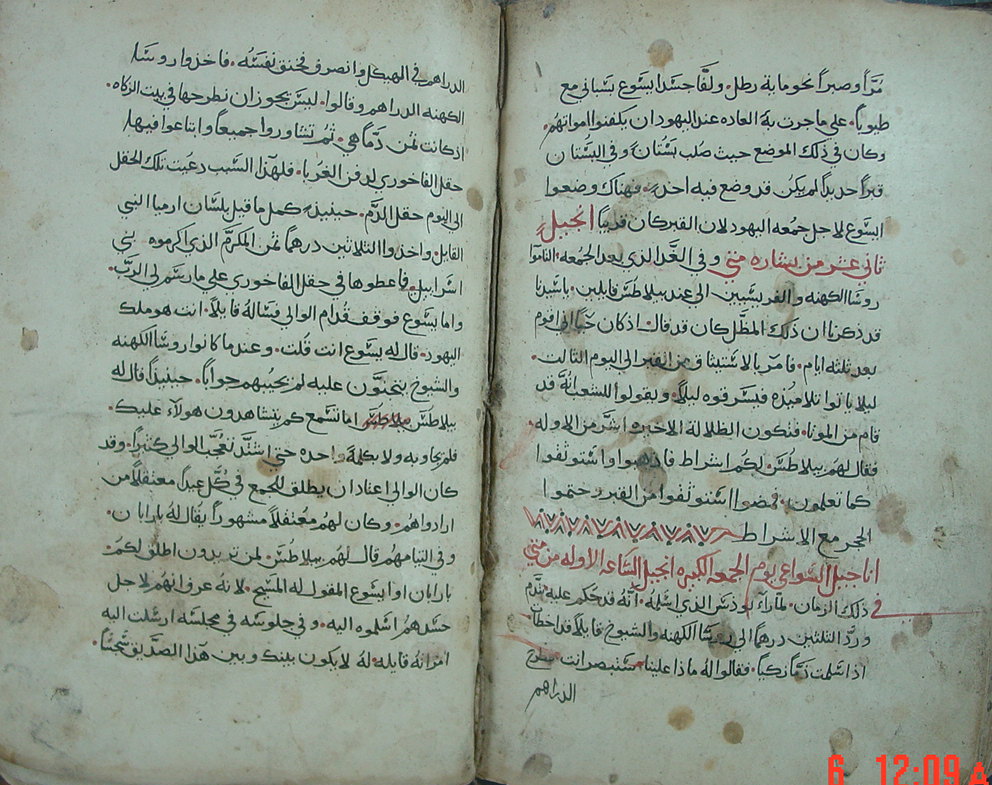 مرًّا وصبراً نحو ماية رطل. ولفّا جسد ايسوع بسباني مع
طيوباً. علي ما جرت به العاده عند اليهود ان يكفنوا امواتهم.
وكان في ذلك الموضع حيث صلب بستان وفي البستان
قبراً جديداً لم يكن قد وضع فيه احد. فهناك وضعوا
ايسوع لاجل جمعه اليهود لان القبر كان قريباً انجيل
ثاني عشر من بشاره متي وفي الغد الذي بعد الجمعه. التاموا
روسا الكهنه والفريسيين الي عند بيلاطس قايلين. ياسيدنا
قد ذكرنا ان ذلك المظل كان قد قال اذ كان حيّاً اني اقوم
بعد ثلثه ايام. فامر بالاستيثاق من القبر الي اليوم الثالت.
ليلا ياتوا تلاميذه فيسرقوه ليلاً. ويقولوا للشعب انه قد
قام من الموتا. فتكون الظلاله الاخيره اشر من الاوله.
فقال لهم بيلاطس. لكم اشراط فاذهبوا واستوثقوا
كما تعلمون. فمضوا استوثقوا من القبر وختموا
الحجر مع الاشراط
اناجيل السواعي يوم الجمعه الكبيره انجيل الساعه الاوله من متي
في ذلك الزمان. لما راء يوذس الذي اسلمه. انه قد حكم عليه تندم
ورد الثلثين درهماً الي روسا الكهنه والشيوخ قايلاً قد اخطات
اذ اسلمت دمًا زكياً. فقالوا له ماذا علينا. ستبصر انت فطرح
الدراهم
الدراهم في الهيكل وانصرف فخنق نفسه. فاخذوا روسا
الكهنه الدراهم وقالوا. ليس يجوز ان نطرحها في بيت الزكاه.
اذ كانت ثمن دمًا هي. ثم تشاوروا جميعاً وابتاعوا فيها
حقل الفاخوري لدفن الغربا. فلهذا السبب دعيت تلك الحقل
الي اليوم حقل الدم. حينيذٍ كمل ما قيل بلسان ارميا النبي
القايل. واخذوا الثلاثين درهماً ثمن المكرم الذي اكرموه بني
اسراييل. فاعطوها في حقل الفاخوري علي ما رسم لي الرب.
واما يسوع فوقف قدام الوالي فساله قايلاً. انت هو ملك
اليهود. قال له يسوع انت قلت. وعندما كانوا روسا الكهنه
والشيوخ يتجنّون عليه لم يجيبهم جواباً. حينيذاً قال له
بيلاطس بيلاطس اما تسمع كم يتشاهدون هولاء عليك.
فلم يجاوبه ولا بكلمة واحده حتي اشتد تعجب الوالي كثيراً. وقد
كان الوالي اعتاد ان يطلق للجمع في كل عيداً معتقلاً من
ارادوا هم. وكان لهم معتقلاً مشهوراً يقال له بارابان.
وفي التيامهم قال لهم بيلاطس. لمن تريدون اطلق لكم.
بارابان او ايسوع المقول له المسيح. لانه عرف انهم لاجل
حسدهم اسلموه اليه. وفي جلوسه في مجلسه ارسلت اليه
امراته قايله له لا يكون بينك وبين هذا الصديق تجنّياً.
6 12:09 A